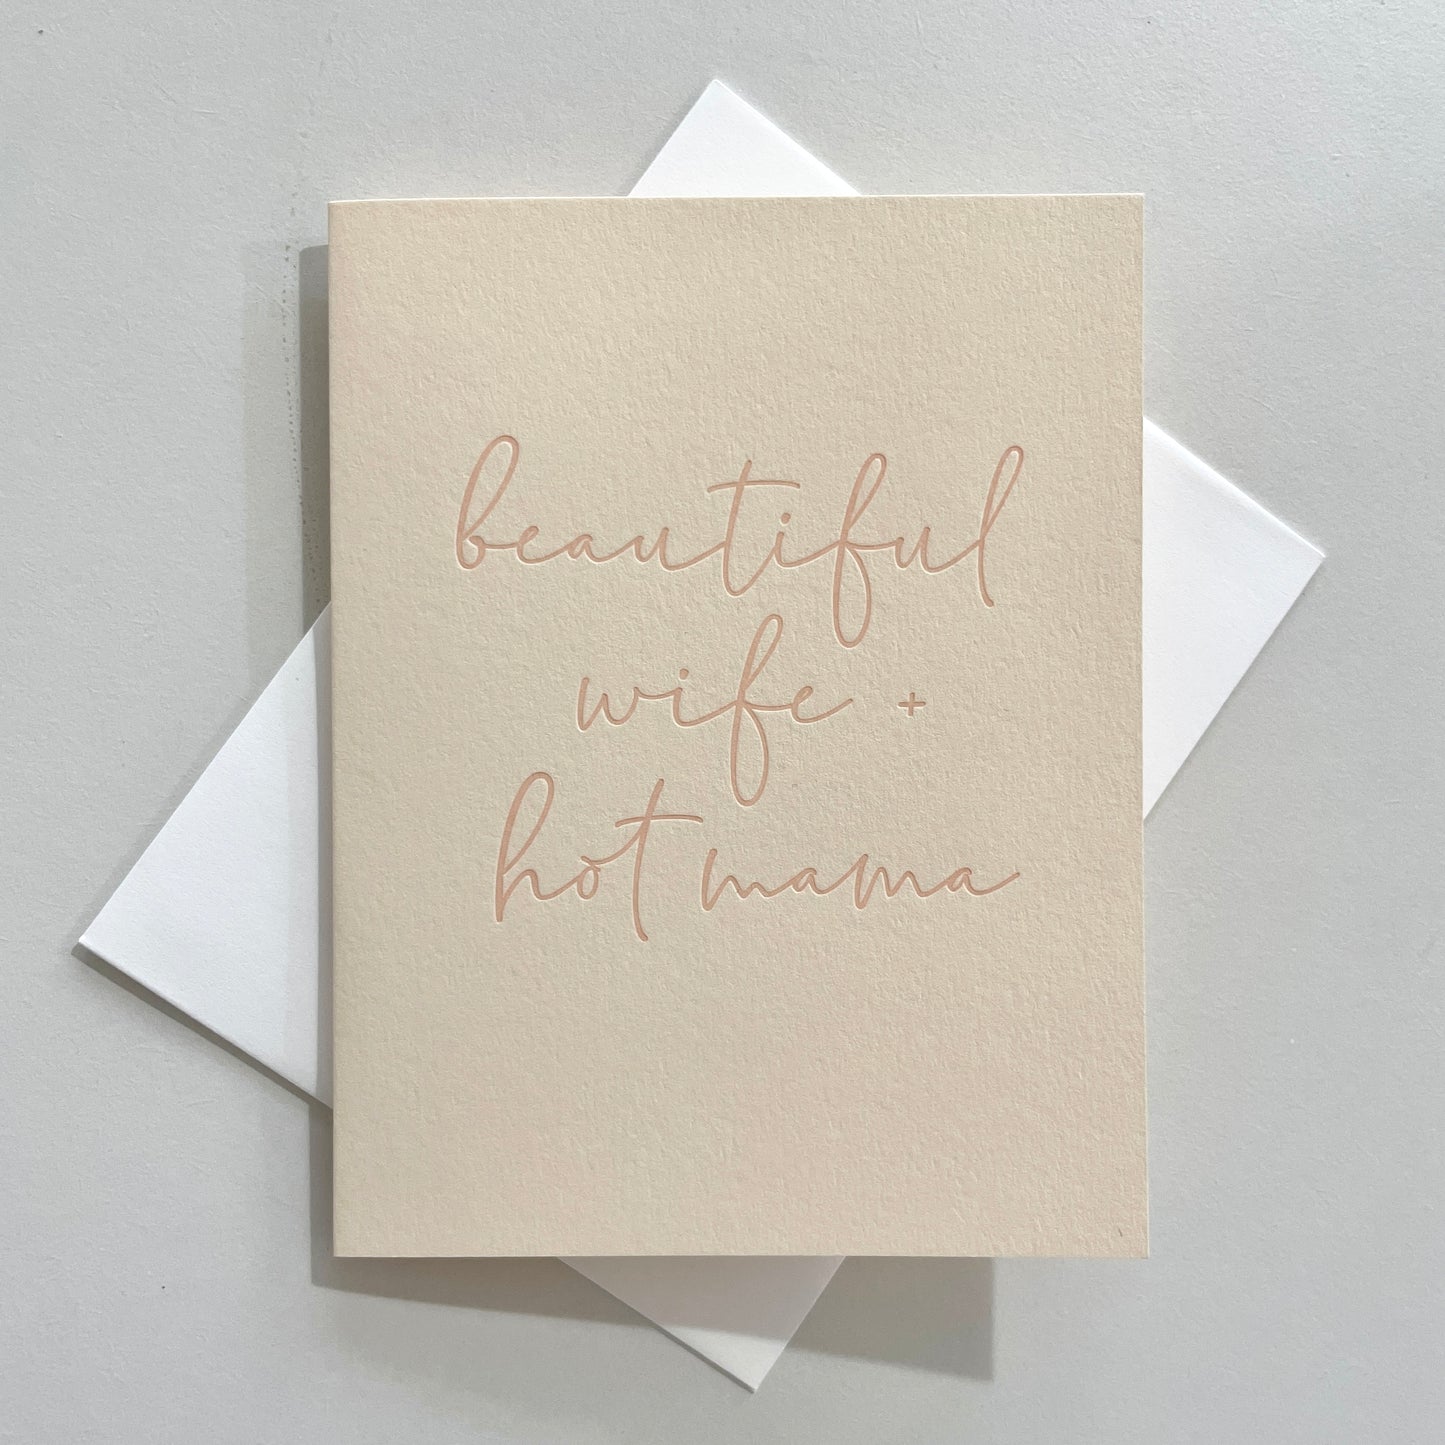 beautiful
wife +
hot mama